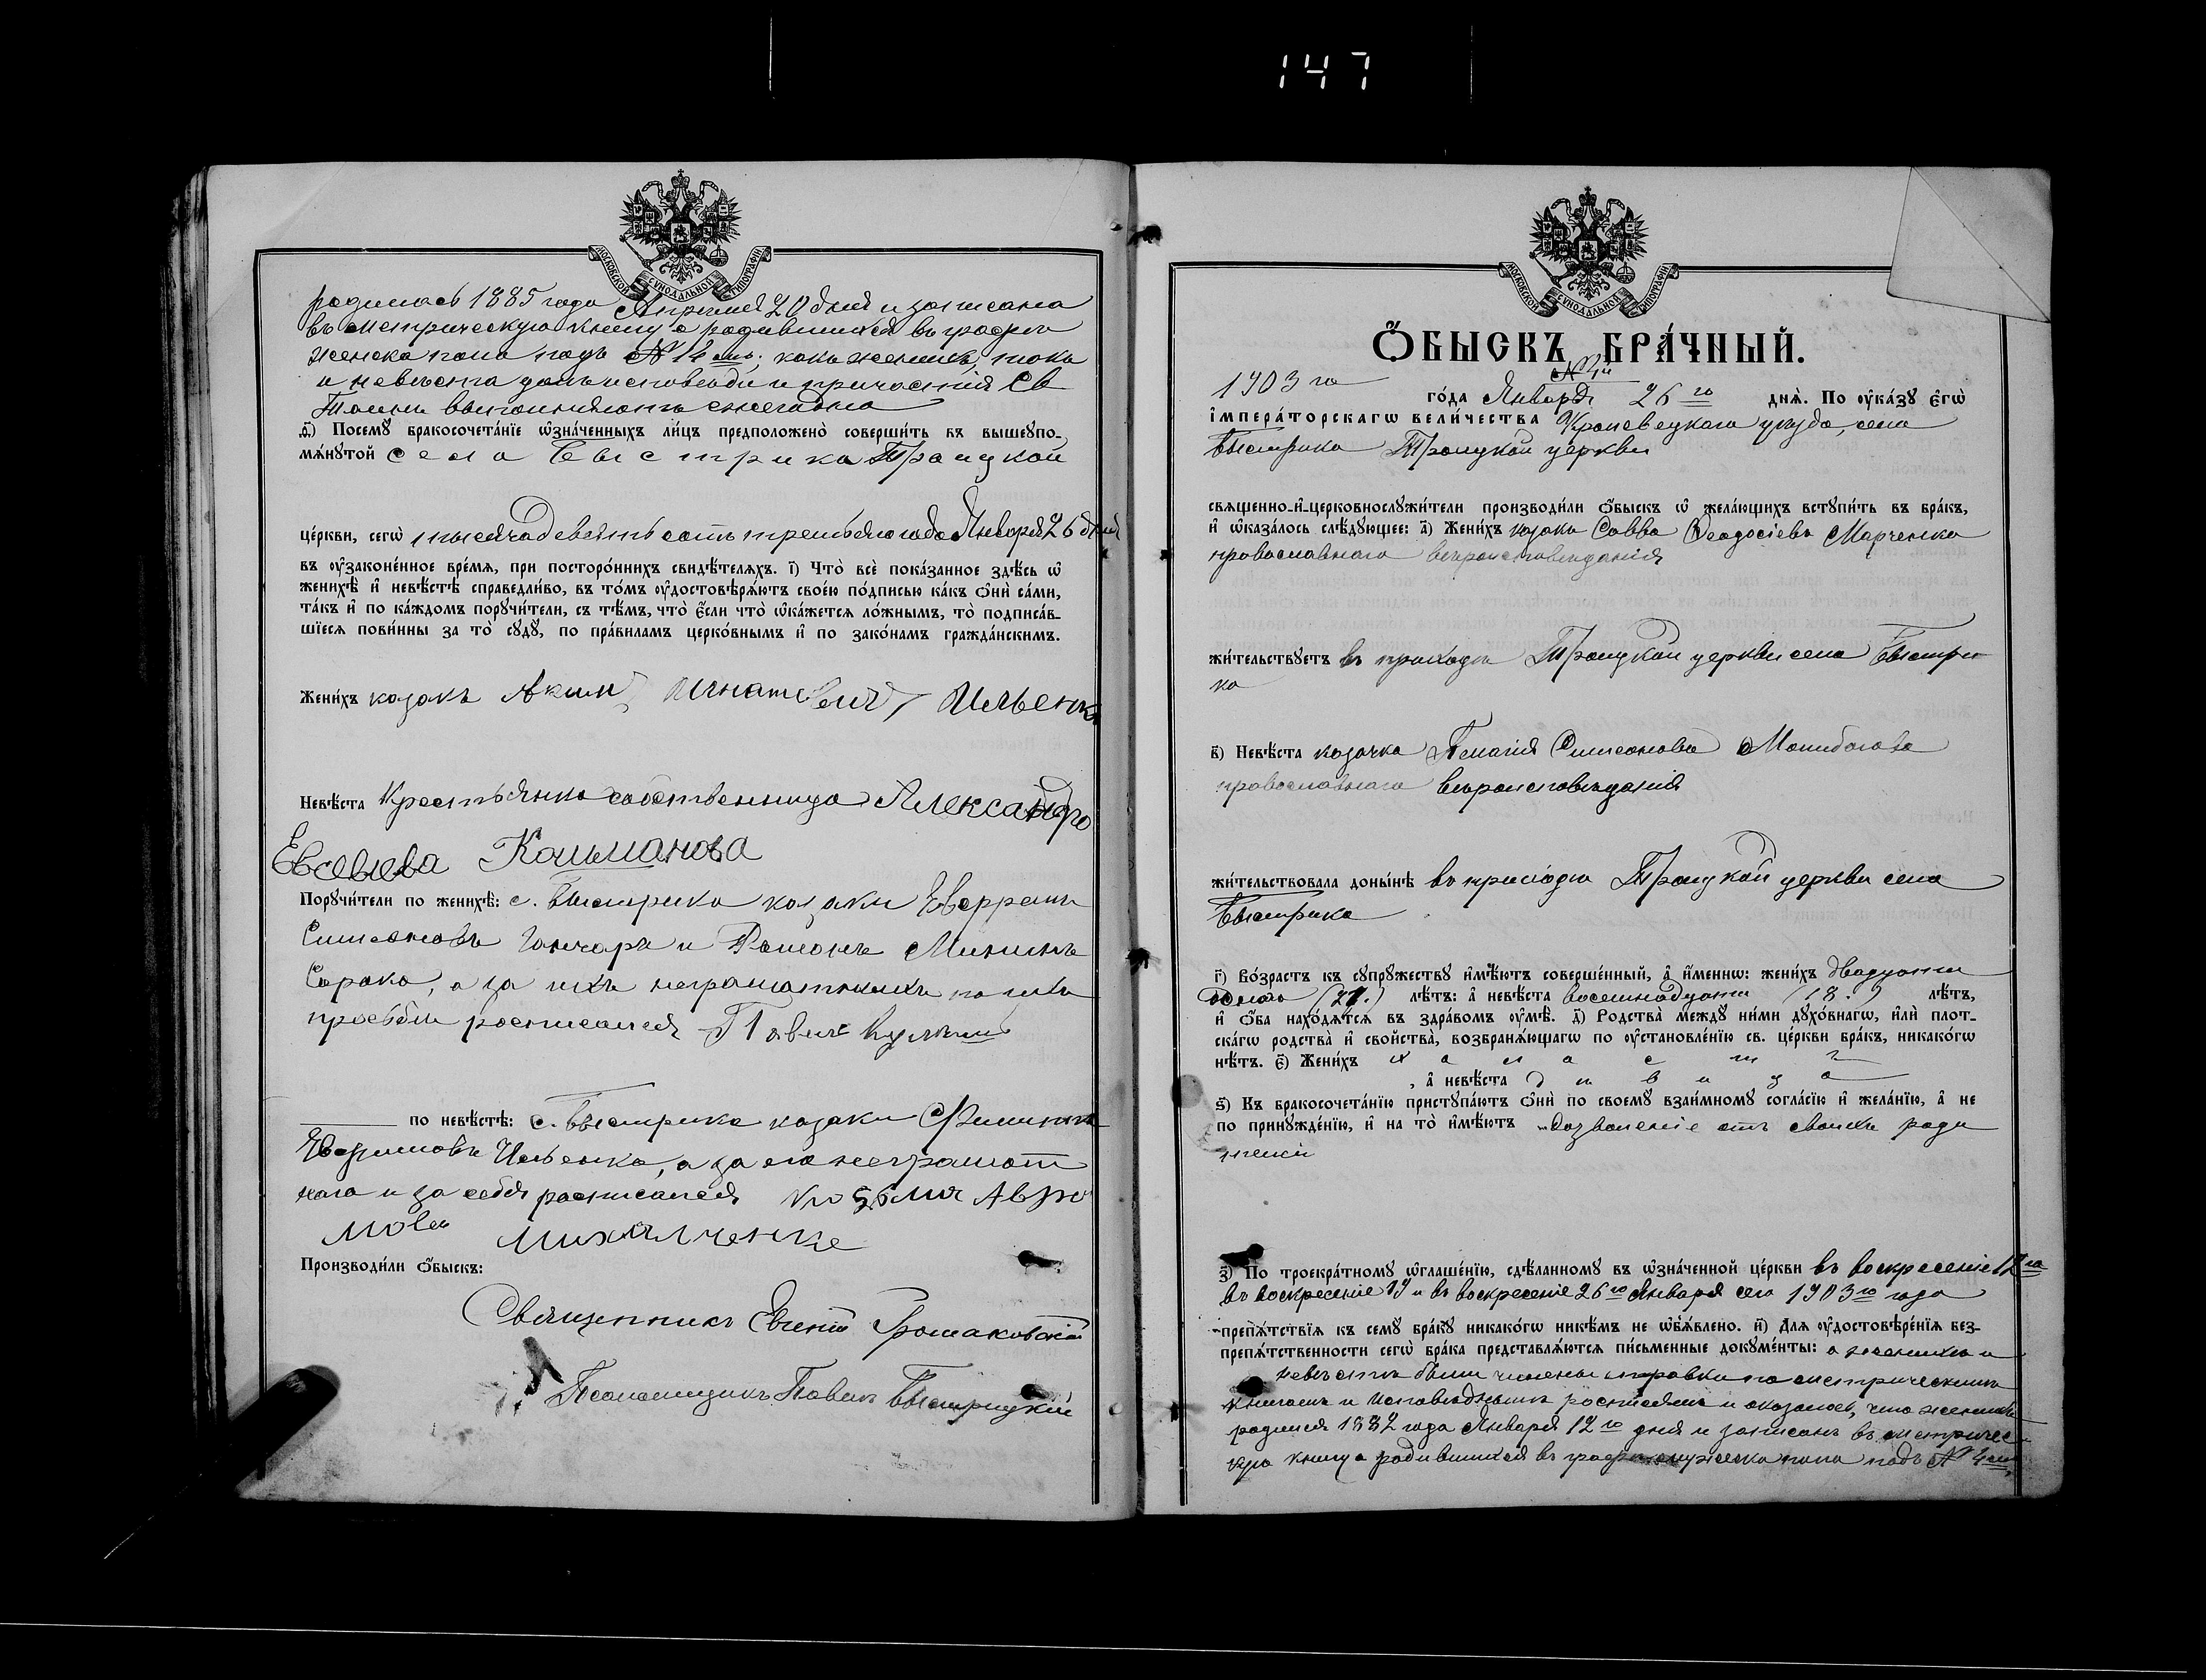 147
МОСКОВСКОЙ СУНОДАЛЬНОЙ ТИПОГРАФІИ
родилась 1885 года Апрѣля 20 дня и записана
въ метрическую книгу о родившихся въ графѣ
женска пола подъ № 14 мъ; какъ женихъ, такъ
и невѣста долгъ исповѣди и причастія Св
Таинъ выполняютъ ежегодно
ѳ҃) Посемꙋ̀ бракосочета́нїе ѡ҆зна́ченныхъ ли́цъ предположено̀ соверши́ть въ вышеꙋпо-
мѧ́нꙋтой села Быстрика Троицкой
це́ркви, сегѡ̀ тысяча девятьсотъ третьяго года Января 26 дня
въ ᲂу҆зако́ненное вре́мѧ, при посторо́ннихъ свидѣ́телѧхъ. і҃) Что̀ всѐ пока́занное здѣ́сь ѡ҆
женихѣ̀ и҆ невѣ́стѣ справедли́во, въ то́мъ ᲂу҆достовѣрѧ́ютъ свое́ю по́дписью ка́къ ѻ҆нѝ са́ми,
та́къ и҆ по ка́ждомъ порꙋчи́тели, съ тѣ́мъ, что̀ є҆́сли что̀ ѡ҆ка́жетсѧ ло́жнымъ, то̀ подписа́в-
шїесѧ пови́нны за то̀ сꙋдꙋ̀, по пра́виламъ церко́внымъ и҆ по зако́намъ гражда́нскимъ.
Жени́хъ козакъ Аким Игнатевич Ильенко
Невѣ́ста Крестьянка собственница Александра
Евсеиева Кошманова
Порꙋчи́тели по женихѣ̀: с. Быстрика козаки
Симеоновъ Гончаръ и Романъ Мининъ
Сорока, а за ихъ неграмотныхъ по ихъ
просьбѣ росписался Павелъ
по невѣ́стѣ: с. Быстрика козаки Филиппъ
Ефимовъ Ильенко, а за его неграмот
наго и за себя росписался Козьма Авра
мовъ Михалченко
Производи́ли ѻ҆́быскъ:
Священникъ Евгеній Громаковскій
Псаломщикъ Павелъ Быстрицкій
МОСКОВСКОЙ СУНОДАЛЬНОЙ ТИПОГРАФІИ
Ѻ҆́БЫСКЪ БРА́ЧНЫЙ.
№ 4й
1903 го го́да Января 26 го днѧ̀. По ᲂу҆ка́зꙋ є҆гѡ̀
і҆мпера́торскагѡ вели́чества Кролевецкаго уѣзда, села
Быстрика Троицкой церкви
свѧщенно-и҆-церковнослꙋжи́тели производи́ли ѻ҆́быскъ ѡ҆ жела́ющихъ встꙋпи́ть въ бра́къ,
и҆ ѡ҆каза́лось слѣ́дꙋющее: а҃) Жени́хъ козакъ Савва Ѳеодосіевъ Марченко
православнаго вѣроисповѣданія
жи́тельствꙋетъ въ приходѣ Троицкой церкви села Быстри
ка
в҃) Невѣ́ста козачка Пелагія Симеонова Молибогова
православнаго вѣроисповѣданія
жи́тельствовала доны́нѣ въ приходѣ Троицкой церкви села
Быстрика
г҃) Во́зрастъ къ сꙋпрꙋ́жествꙋ и҆мѣ́ютъ соверше́нный, а҆ и҆́меннѡ: жени́хъ двадцати
одного (21.) лѣ́тъ: а҆ невѣ́ста восемнадцати (18.) лѣ́тъ,
и҆ ѻ҆́ба нахо́дѧтсѧ въ здра́вомъ ᲂу҆мѣ̀. д҃) Родства̀ междꙋ̀ ни́ми дꙋхо́внагѡ, и҆лѝ плот-
ска́гѡ родства̀ и҆ сво́йства̀, возбранѧ́ющагѡ по ᲂу҆становле́нїю св. це́ркви бра́къ, никако́гѡ
нѣ́тъ. є҃) Жени́хъ холостъ
, а҆ невѣ́ста дѣвица
ѕ҃) Къ бракосочета́нїю пристꙋпа́ютъ ѻ҆нѝ по своемꙋ̀ взаи́мномꙋ согла́сїю и҆ жела́нїю, а҆ не
по принꙋжде́нїю, и҆ на то̀ и҆мѣ́ютъ дозволеніе отъ своихъ роди
телей
з҃) По троекра́тномꙋ ѡ҆глаше́нїю, сдѣ́ланномꙋ въ ѡ҆зна́ченной це́ркви въ воскресеніе 12 го
въ воскресеніе 19 и въ воскресеніе 26 го Января сего 1903 го года
препѧ́тствїѧ къ семꙋ̀ бра́кꙋ никако́гѡ никѣ́мъ не ѡ҆б̾ѧ́влено. и҃) Длѧ ᲂу҆достовѣре́нїѧ без-
препѧ́тственности сегѡ̀ бра́ка представлѧ́ютсѧ пи́сьменные докꙋме́нты: о женихѣ и
невѣстѣ были учинены справки по метрическимъ
книгамъ и исповѣднымъ росписямъ и оказалось, что женихъ
родился 1882 года Января 12 го дня и записанъ въ метричес
кую книгу о родившихся въ графѣ мужеска пола подъ № 4 мъ,